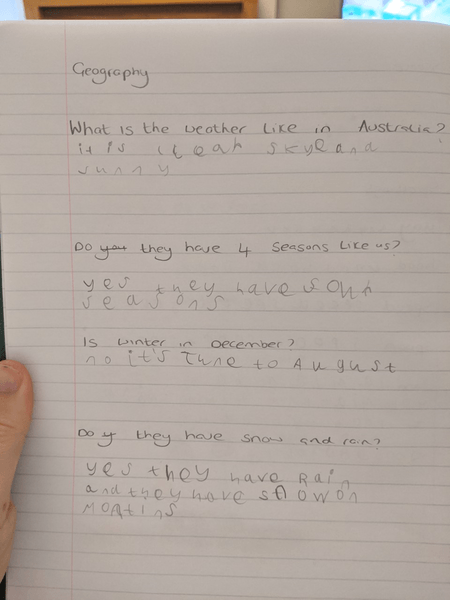 Geography
What is the weather like in Australia?
it is clear skye and
sunny
Do you they have 4 seasons like us?
yes they have four
seasons
Is winter in December?
no it's June to August
Do y they have snow and rain?
yes they have Rain
and they have snow on